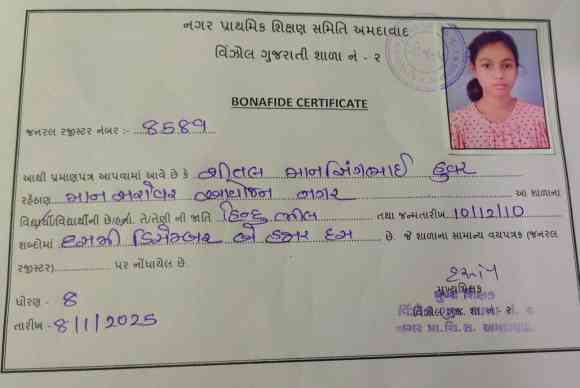 નગર પ્રાથમિક શિક્ષણ સમિતિ અમદાવાદ
વિંઝોલ ગુજરાતી શાળા નં - ૨
BONAFIDE CERTIFICATE
જનરલ રજીસ્ટર નંબર :- 8589
આથી પ્રમાણપત્ર આપવામાં આવે છે કે શીતલ માનસિંગભાઈ ડુવર
રહેઠાણ માન સરોવર આવાજન નગર આ શાળાના
વિદ્યાર્થી/વિદ્યાર્થીની છે/હતી. તે/તેણી ની જાતિ હિન્દુ ભીલ તથા જન્મતારીખ 10/12/10
શબ્દોમાં દસમી ડિસેમ્બર બે હજાર દસ છે. જે શાળાના સામાન્ય વયપત્રક (જનરલ
રજીસ્ટર) પર નોંધાયેલ છે
મુખ્યશિક્ષક
ધોરણ - 8
વિંઝોલ ગુજ. શા. નં.
તારીખ - 8/1/2025
નગર પ્રા. શિ. સ. અમદાવાદ